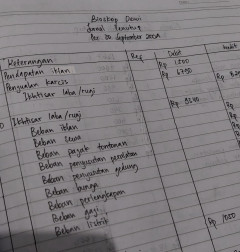 Bioskop Dewi
Jurnal Penutup
Per 30 September 200A
Keterangan Ref Debit Kredit
Pendapatan iklan Rp 1.500
Penjualan karcis Rp 6.750
Ikhtisar laba/rugi Rp
Ikhtisar laba/rugi Rp
Beban iklan
Beban sewa
Beban pajak tontonan
Beban penyusutan peralatan
Beban penyusutan gedung
Beban bunga
Beban perlengkapan
Beban gaji
Beban listrik
Rp